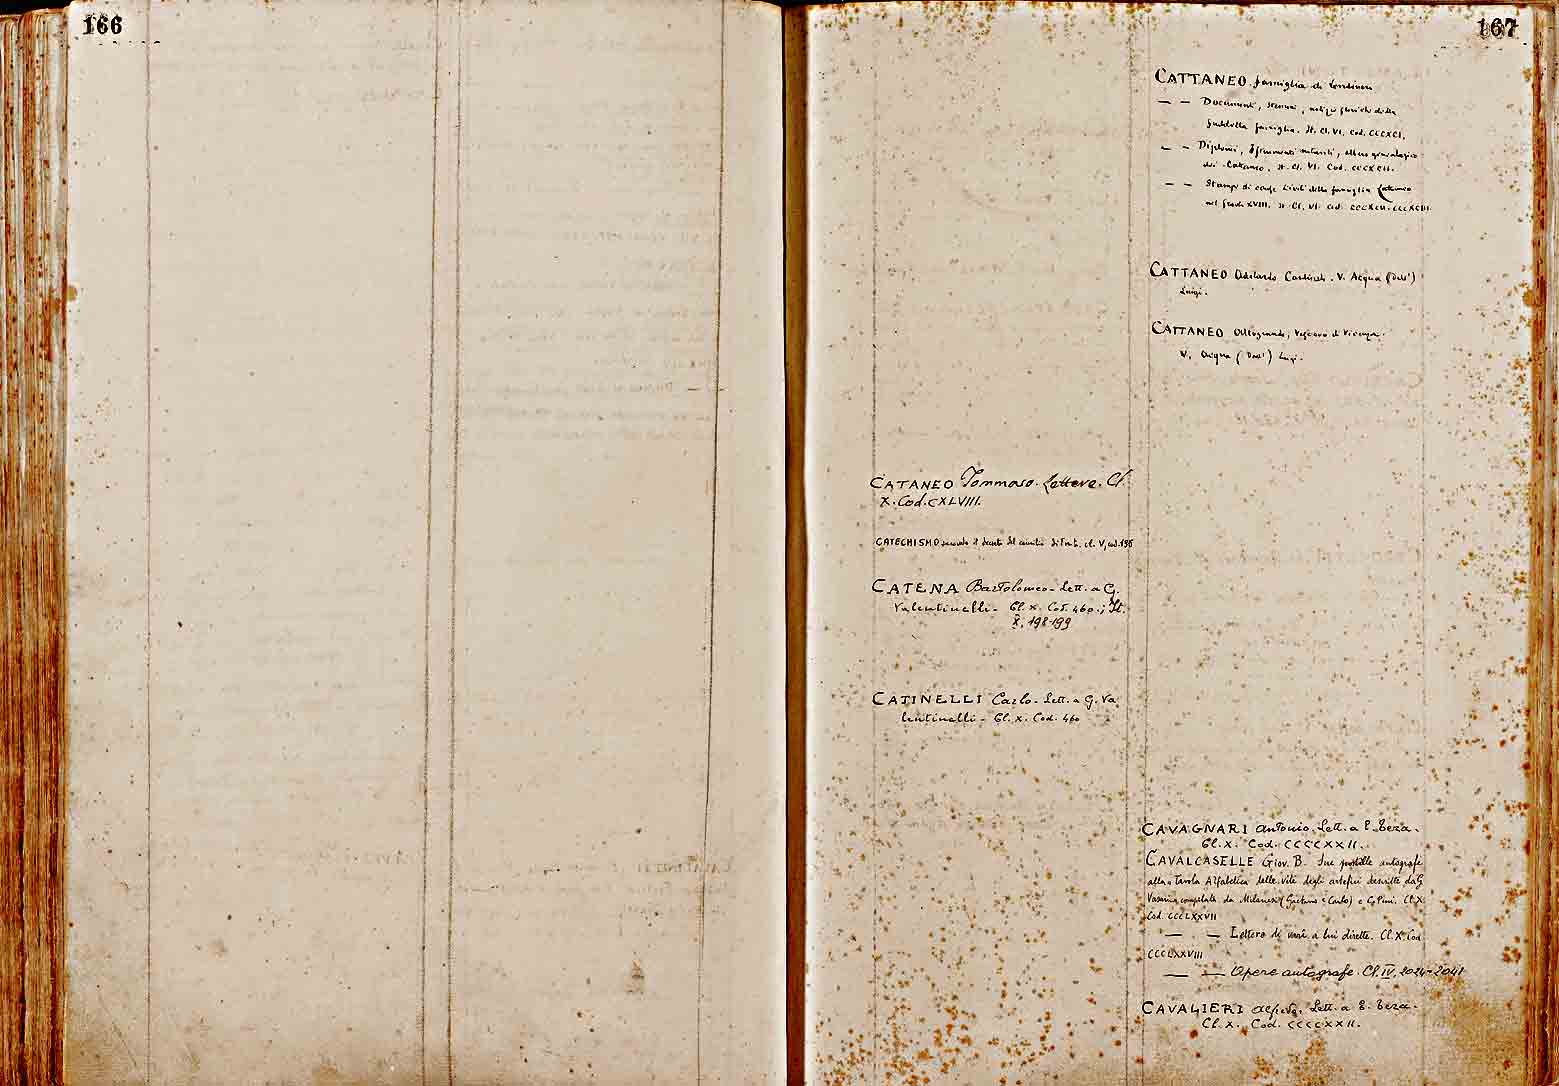 166
167
CATANEO Tommaso. Lettere. Cl.
X. Cod. CXLVIII.
CATECHISMO secondo il decreto del concilio di Trento. cl. V, cod. 196
CATENA Bartolomeo - Lett. a G.
Valentinelli - Cl. X. Cod. 460.; It.
X, 198-199
CATINELLI Carlo - Lett. a G. Va
lentinelli - Cl. X. Cod. 460
CATTANEO famiglia di
— — Documenti, stemmi, notizie storiche della
suddetta famiglia. It. Cl. VI. Cod. CCCXCI.
— — Diplomi, Istrumenti, albero genealogico
dei Cataneo. It. Cl. VI. Cod. CCCXCII.
— — Stampe di cause Civili della famiglia Cattaneo
nel Secolo XVIII. It. Cl. VI. Cod.
CATTANEO Adelardo Cardinale. V. Acqua (Dall')
Luigi.
CATTANEO Altogrado, Vescovo di Vicenza.
V. Acqua (Dall') Luigi.
CAVAGNARI Antonio. Lett. a E. Teza.
Cl. X. Cod. CCCCXXII.
CAVALCASELLE Giov. B. Sue postille autografe
alla Tavola Alfabetica delle vite degli artefici descritte da G.
Vasari compilata da Milanesi (Gaetano e Carlo) e C. Pini. Cl. X.
Cod. CCCLXXVII
— — Lettere di varî a lui dirette. Cl. X. Cod
CCCLXXVIII
— — Opere autografe. Cl. IV, 2024-2041
CAVALIERI Alfredo. Lett. a E. Teza.
Cl. X. Cod. CCCCXXII.